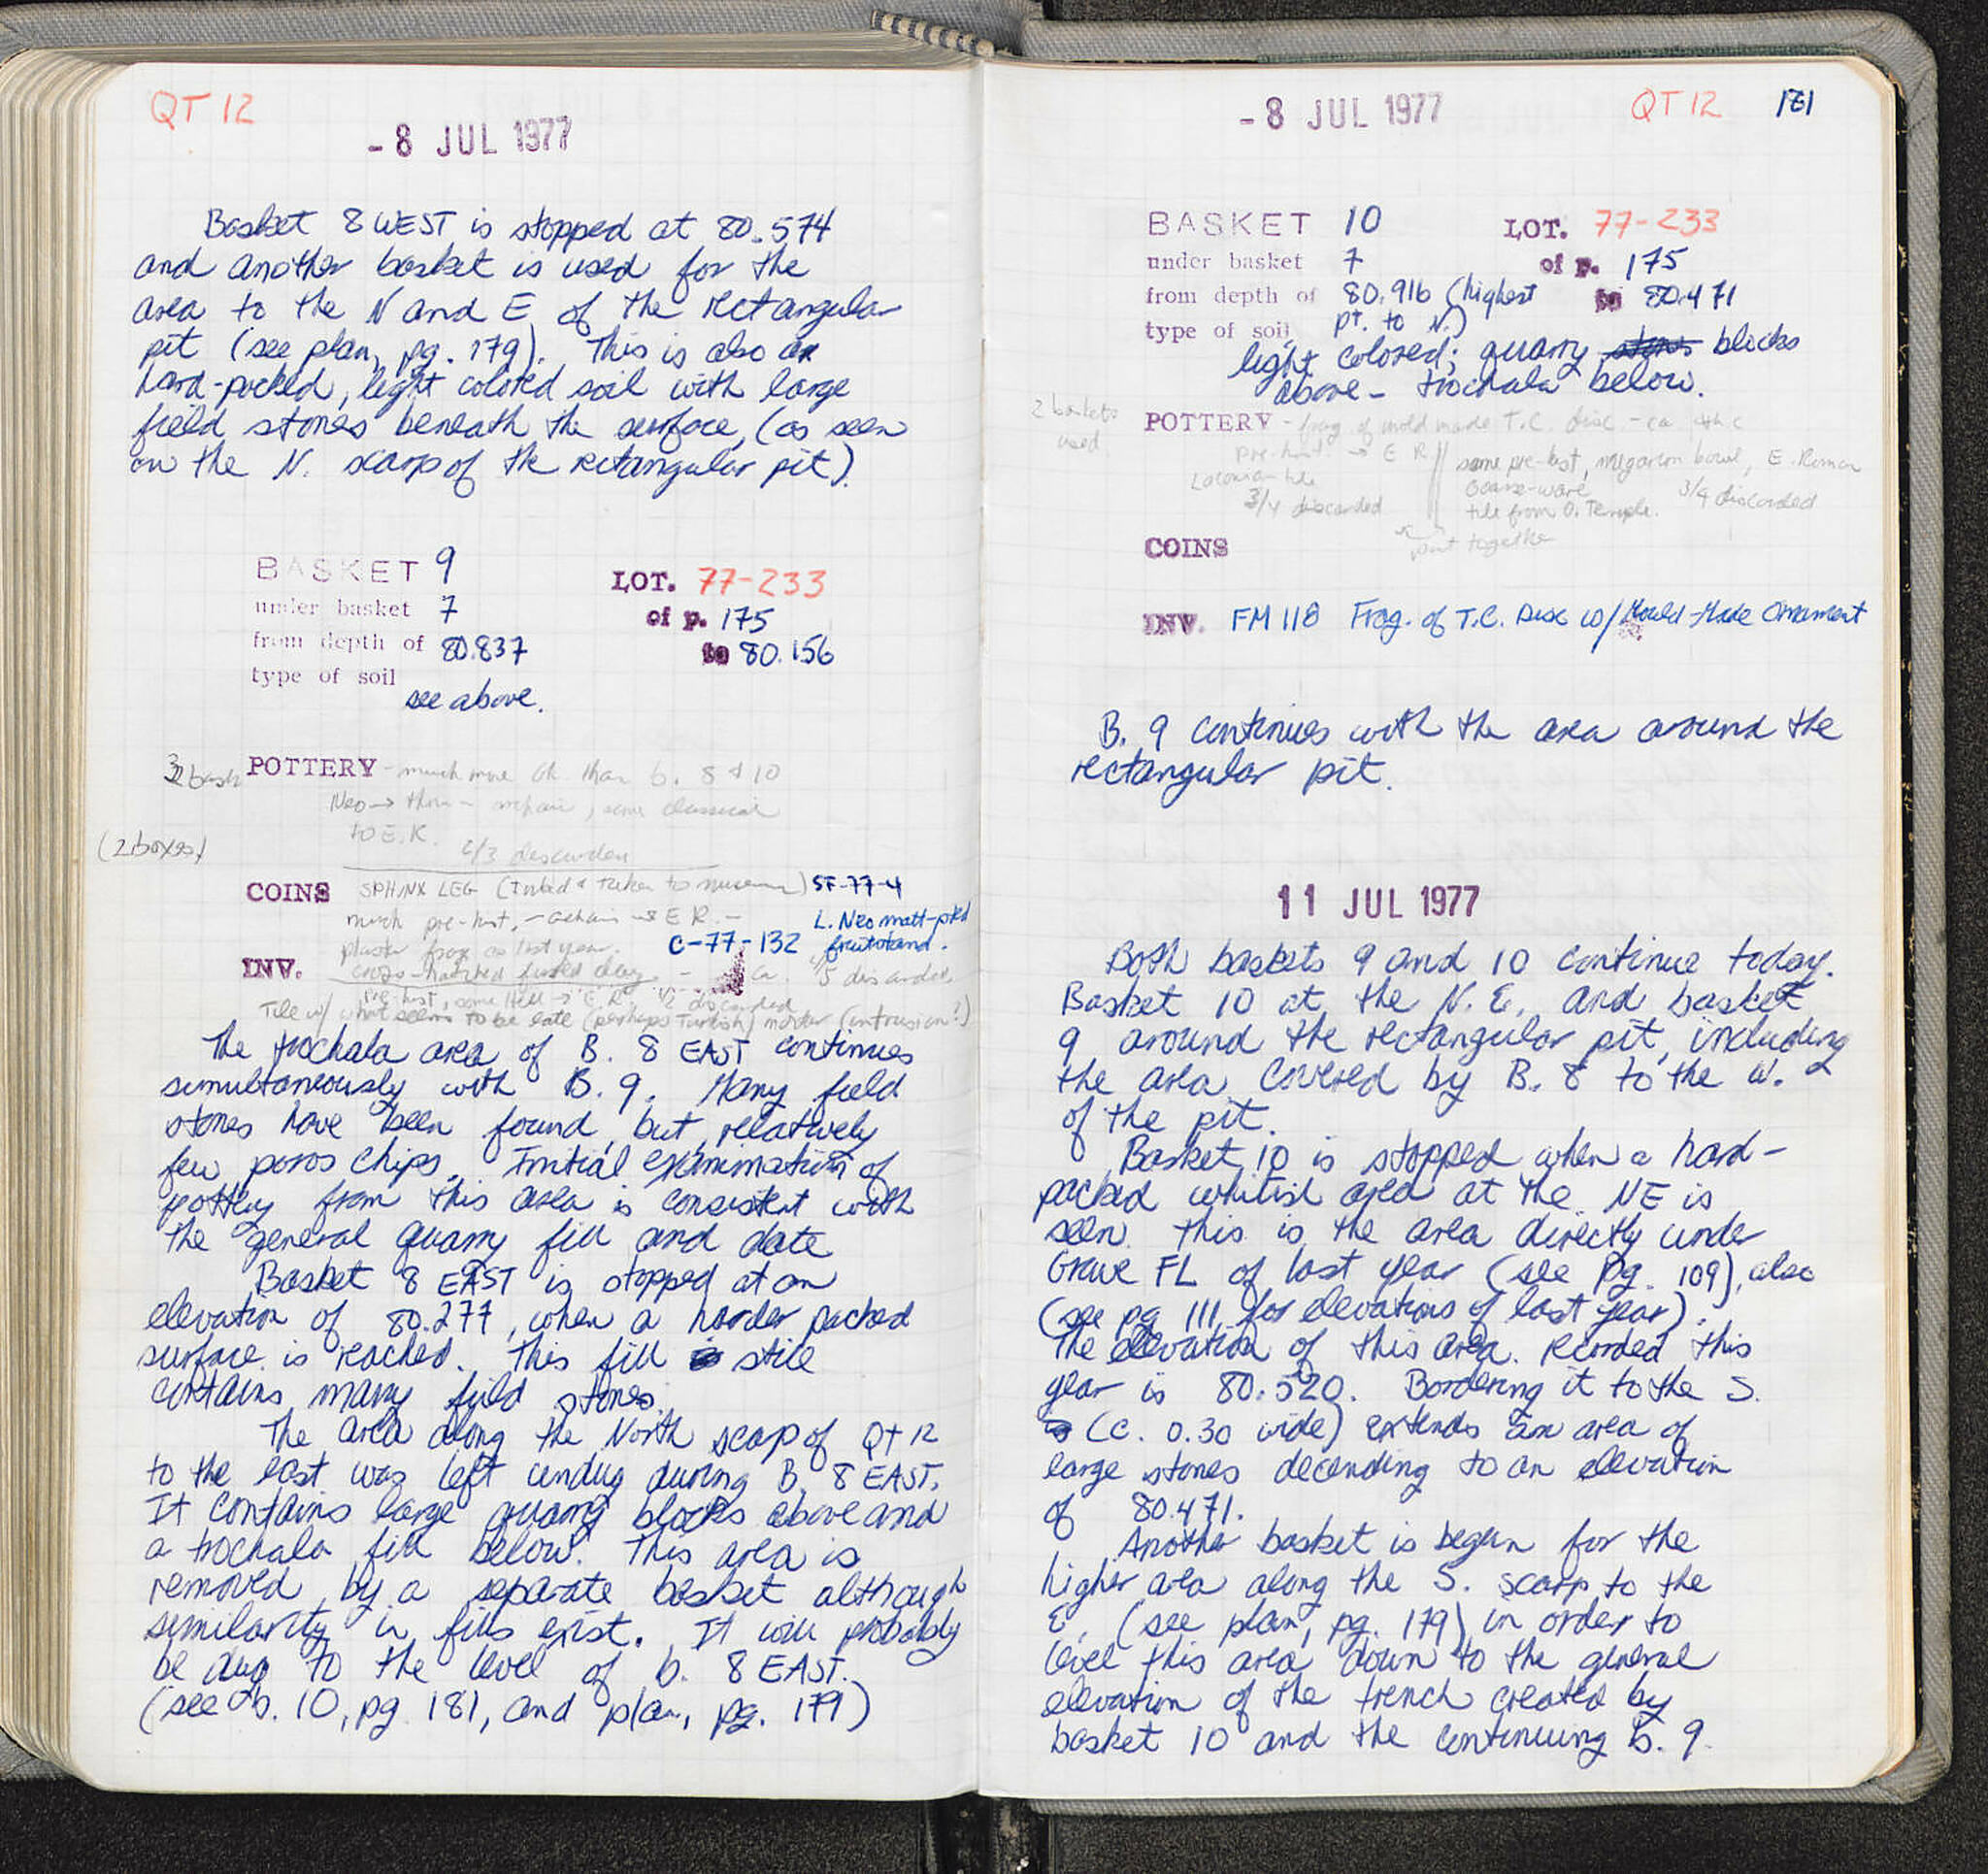 QT 12
- 8 JUL 1977
Basket 8 WEST is stopped at 80.574
and another basket is used for the
area to the N and E of the rectangular
pit (see plan, pg. 179). This is also a
hard-packed, light colored soil with large
field stones beneath the surface, (as seen
on the N. scarp of the rectangular pit).
BASKET 9 LOT. 77-233
under basket 7 of p. 175
from depth of 80.837 to 80.156
type of soil
see above.
POTTERY - much more than b. 8 & 10
Neo → some classical
to E.R.
2/3 discarded
(2 boxes)
COINS SPHINX LEG (Inked & taken to museum) SF-77-4
much pre-hist. E R. - L. Neo matt-ptd
plaster frag as last year. C-77-132 fruitstand.
INV. 4/5 discarded
pre-hist, some Hell → E R. 1/2 discarded
Tile w/ what seems to be late (perhaps Turkish) mortar (intrusion?)
The trochala area of B. 8 EAST continues
simultaneously with B. 9. Many field
stones have been found, but relatively
few poros chips. Initial examination of
pottery from this area is consistent with
the general quarry fill and date
Basket 8 EAST is stopped at an
elevation of 80.277, when a harder packed
surface is reached. This fill still
contains many field stones.
The area along the North scarp of QT 12
to the east was left undug during B. 8 EAST.
It contains large quarry blocks above and
a trochala fill below. This area is
removed by a separate basket although
similarity in fills exist. It will probably
be dug to the level of b. 8 EAST.
(see b. 10, pg. 181, and plan, pg. 179)
- 8 JUL 1977 QT 12 181
BASKET 10 LOT. 77-233
under basket 7 of p. 175
from depth of 80.916 (highest to 80.471
type of soil pt. to N.)
light colored; quarry stones blocks
above - trochala below.
2 baskets
used
POTTERY - frag. of mold made T.C. disc. - ca. 4th c
pre-hist. → E R || some pre-hist, megarian bowl, E. Roman
Laconian tile coarse-ware 3/4 discarded
3/4 discarded tile from O. Temple.
put together
COINS
INV. FM 118 Frag. of T.C. Disc w/ Mould-Made Ornament
B. 9 continues with the area around the
rectangular pit.
11 JUL 1977
Both baskets 9 and 10 continue today.
Basket 10 at the N.E. and basket
9 around the rectangular pit, including
the area covered by B. 8 to the W.
of the pit.
Basket 10 is stopped when a hard-
packed whitish area at the NE is
seen. This is the area directly under
Grave FL of last year (see pg. 109), also
(see pg 111 for elevations of last year).
The elevation of this area recorded this
year is 80.520. Bordering it to the S.
(c. 0.30 wide) extends an area of
large stones decending to an elevation
of 80.471.
Another basket is begun for the
higher area along the S. scarp to the
E. (see plan, pg. 179) in order to
level this area down to the general
elevation of the trench created by
basket 10 and the continuing B. 9.